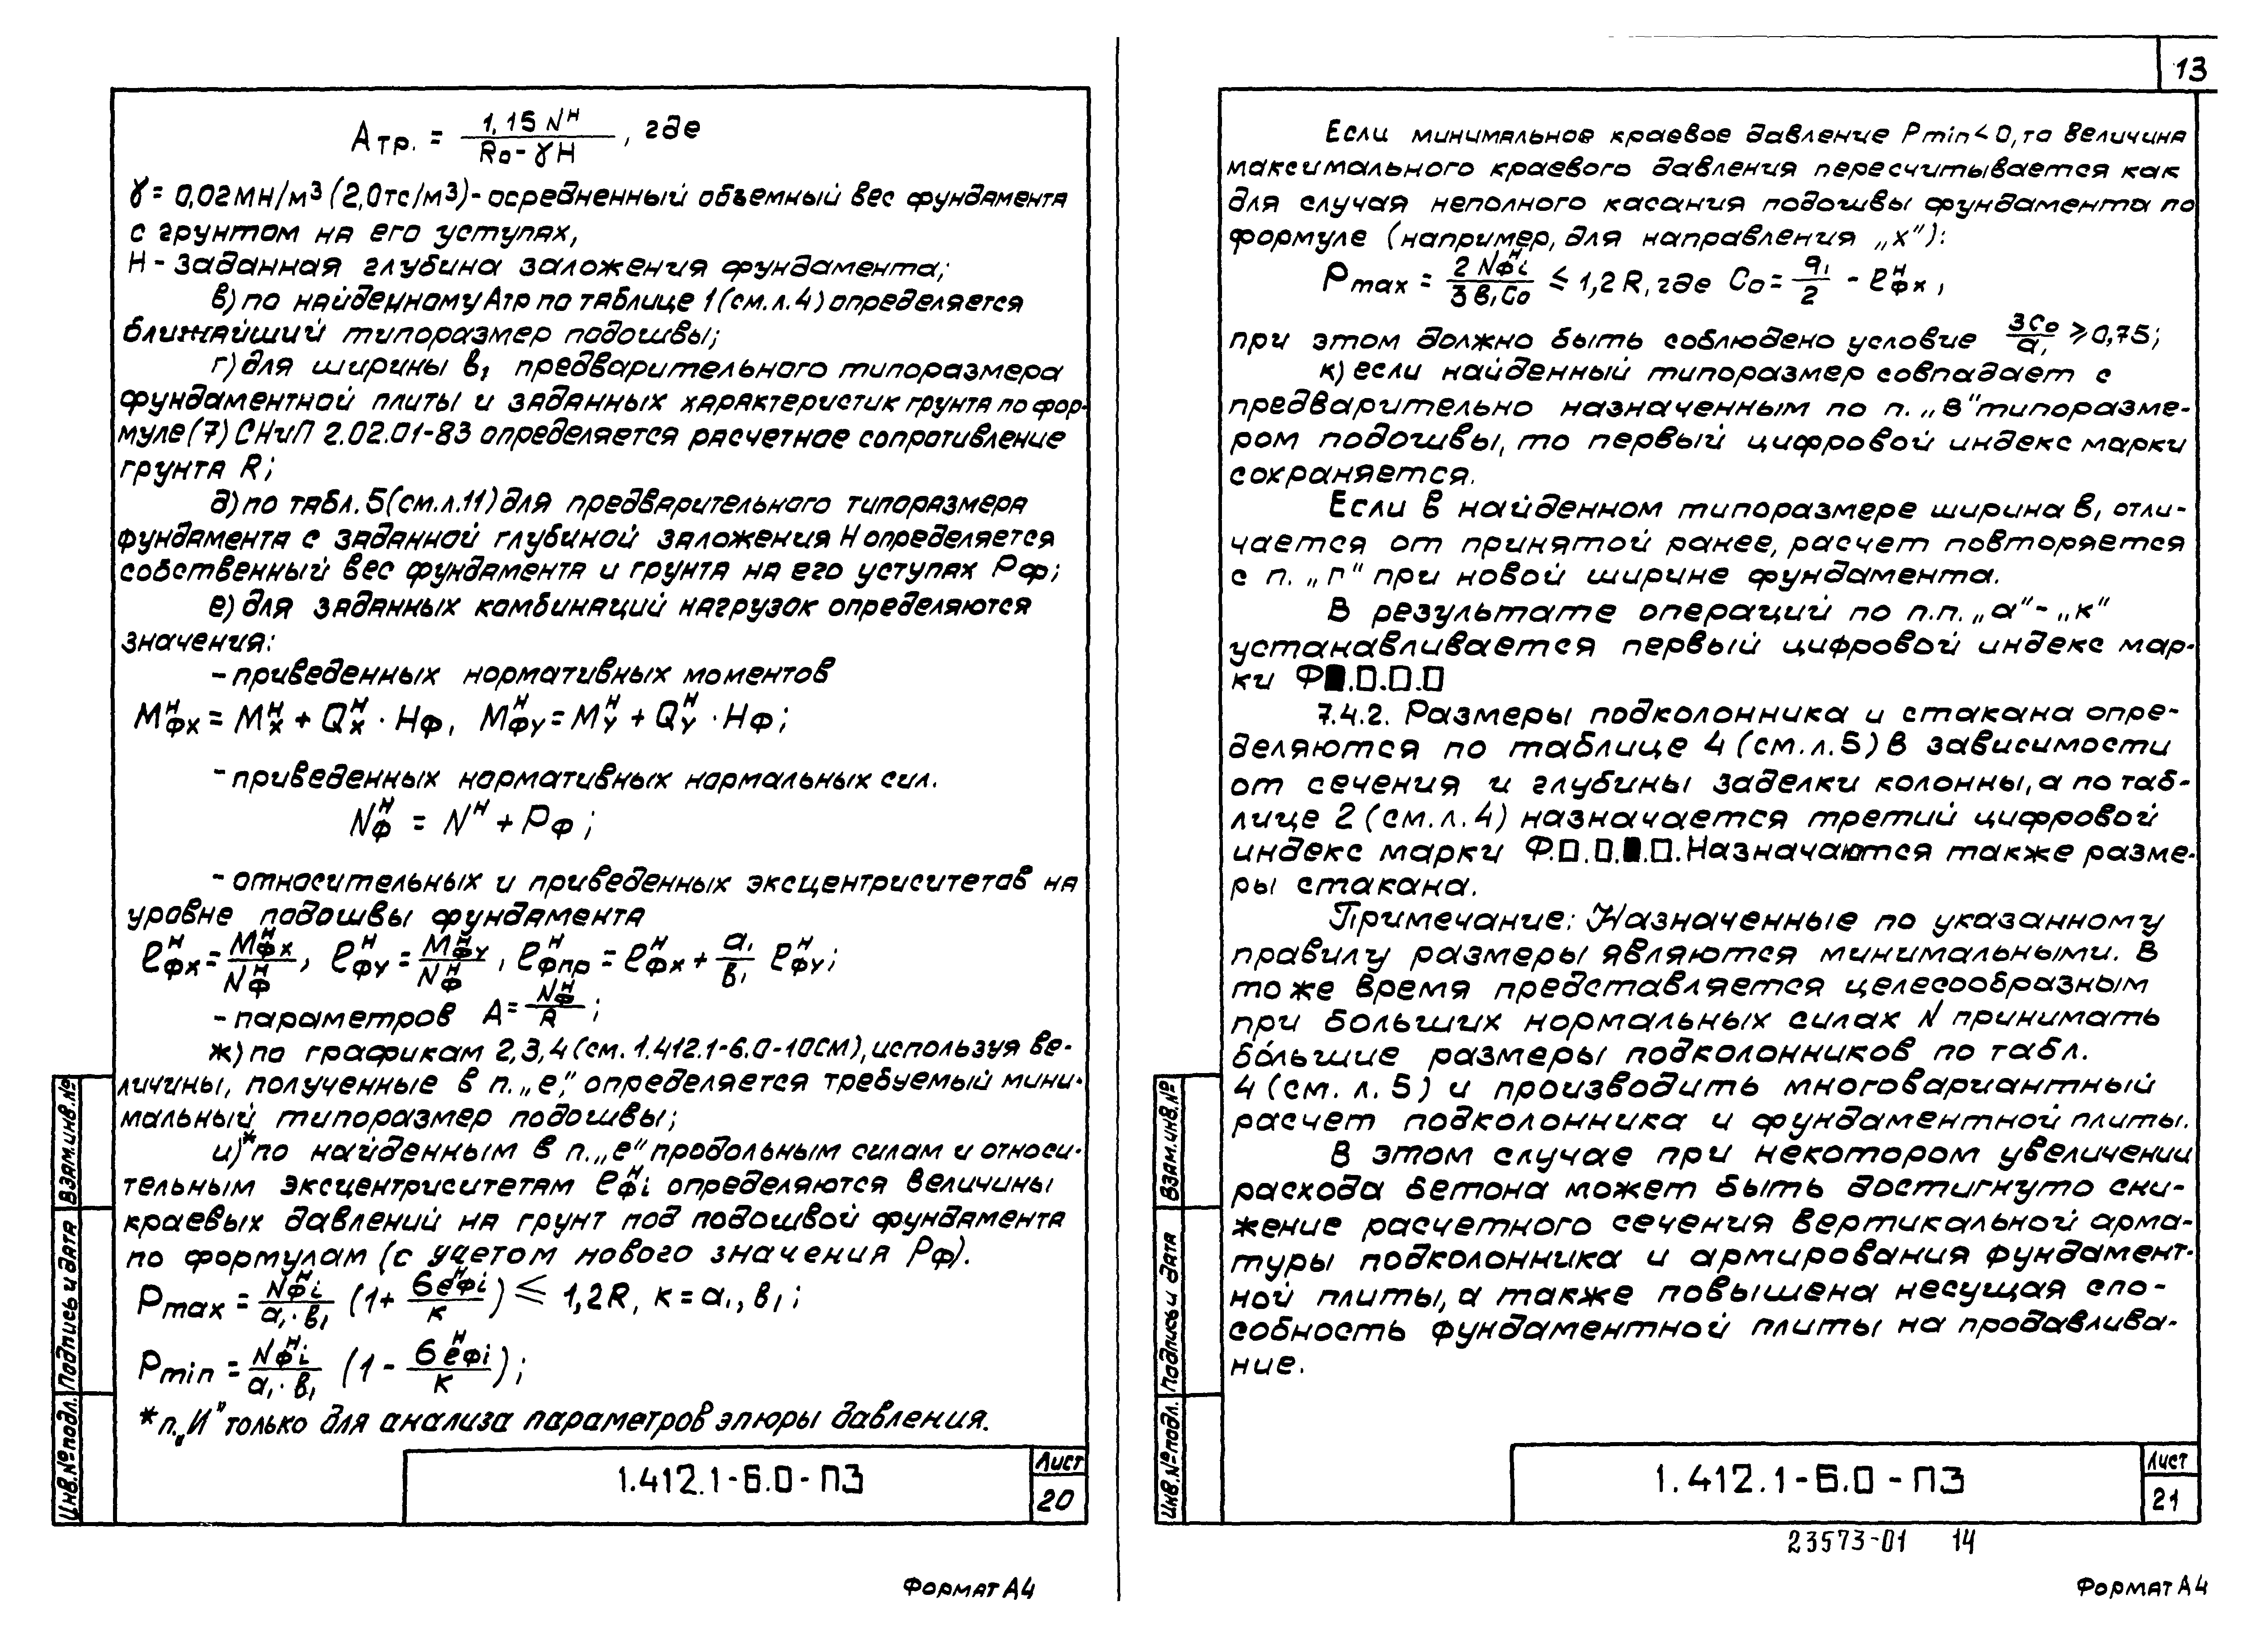 Aтр. = 1,15 Nᴴ / (R₀ - γH), где
γ = 0,02 МН/м³ (2,0 тс/м³) - осредненный объемный вес фундамента
с грунтом на его уступах,
H - заданная глубина заложения фундамента;
в) по найденному Aтр по таблице 1 (см. л. 4) определяется
ближайший типоразмер подошвы;
г) для ширины в₁ предварительного типоразмера
фундаментной плиты и заданных характеристик грунта по фор-
муле (7) СНиП 2.02.01-83 определяется расчетное сопротивление
грунта R;
д) по табл. 5 (см. л. 11) для предварительного типоразмера
фундамента с заданной глубиной заложения H определяется
собственный вес фундамента и грунта на его уступах Pф;
е) для заданных комбинаций нагрузок определяются
значения:
- приведенных нормативных моментов
Mᴴфх = Mᴴх + Qᴴх · Hф, Mᴴфу = Mᴴу + Qᴴу · Hф;
- приведенных нормативных нормальных сил.
Nᴴф = Nᴴ + Pф;
- относительных и приведенных эксцентриситетов на
уровне подошвы фундамента
eᴴфх = Mᴴфх / Nᴴф, eᴴфу = Mᴴфу / Nᴴф, eᴴфпр = eᴴфх + a₁/в₁ eᴴфу;
- параметров A = Nᴴф / R;
ж) по графикам 2, 3, 4 (см. 1.412.1-6.0-10СМ), используя ве-
личины, полученные в п. „е“, определяется требуемый мини-
мальный типоразмер подошвы;
и)* по найденным в п. „е“ продольным силам и относи-
тельным эксцентриситетам eᴴфi определяются величины
краевых давлений на грунт под подошвой фундамента
по формулам (с учетом нового значения Pф).
Pmax = Nᴴфi / (a₁·в₁) (1 + 6eᴴфi / к) ≤ 1,2R, к = a₁, в₁;
Pmin = Nᴴфi / (a₁·в₁) (1 - 6eᴴфi / к);
* п. „И“ только для анализа параметров эпюры давления.
Взам. инв. №
Подпись и дата
Инв. № подл.
1.412.1-6.0-ПЗ
Лист
20
Формат А4
13
Если минимальное краевое давление Pmin < 0, то величина
максимального краевого давления пересчитывается как
для случая неполного касания подошвы фундамента по
формуле (например, для направления „х“):
Pmax = 2 Nᴴфi / (3 в₁ C₀) ≤ 1,2 R, где C₀ = a₁/2 - eᴴфх,
при этом должно быть соблюдено условие 3C₀/a₁ ≥ 0,75;
к) если найденный типоразмер совпадает с
предварительно назначенным по п. „в“ типоразме-
ром подошвы, то первый цифровой индекс марки
сохраняется.
Если в найденном типоразмере ширина в₁ отли-
чается от принятой ранее, расчет повторяется
с п. „г“ при новой ширине фундамента.
В результате операций по п.п. „а“ - „к“
устанавливается первый цифровой индекс мар-
ки Ф■.□.□.□
7.4.2. Размеры подколонника и стакана опре-
деляются по таблице 4 (см. л. 5) в зависимости
от сечения и глубины заделки колонны, а по таб-
лице 2 (см. л. 4) назначается третий цифровой
индекс марки Ф.□.□.■.□. Назначаются также разме-
ры стакана.
Примечание: Назначенные по указанному
правилу размеры являются минимальными. В
то же время представляется целесообразным
при больших нормальных силах N принимать
бóльшие размеры подколонников по табл.
4 (см. л. 5) и производить многовариантный
расчет подколонника и фундаментной плиты.
В этом случае при некотором увеличении
расхода бетона может быть достигнуто сни-
жение расчетного сечения вертикальной арма-
туры подколонника и армирования фундамент-
ной плиты, а также повышена несущая спо-
собность фундаментной плиты на продавлива-
ние.
Взам. инв. №
Подпись и дата
Инв. № подл.
1.412.1-6.0-ПЗ
Лист
21
23573-01 14
Формат А4